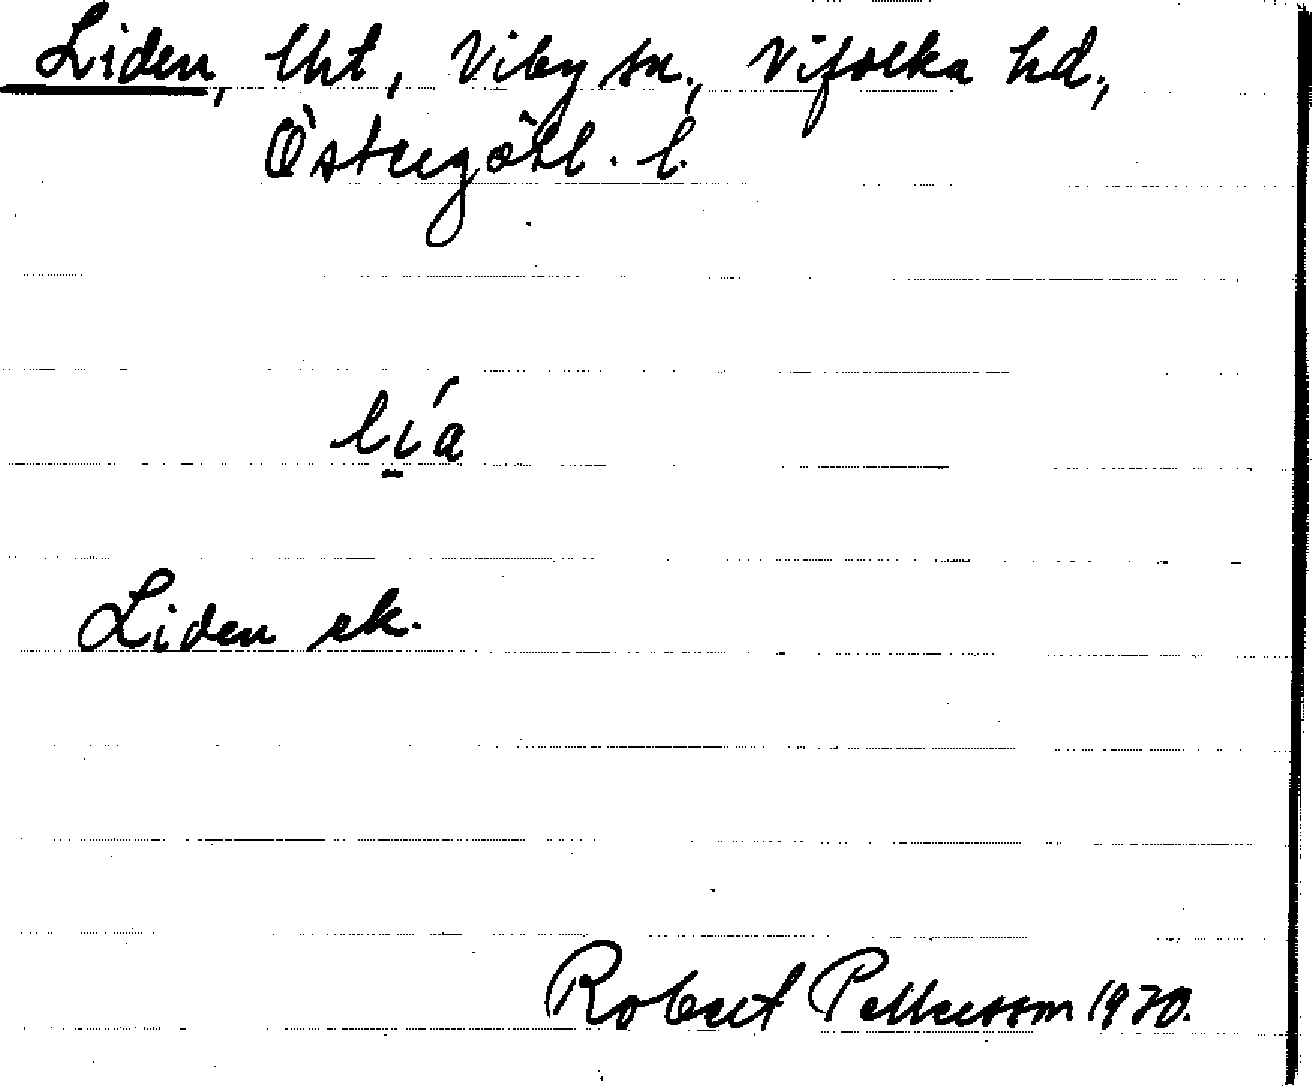 Liden, lht, Viby sn., Vifolka hd.,
Östergötl. l.
lí̠a
Liden ek.
Robert Pettersson 1930.